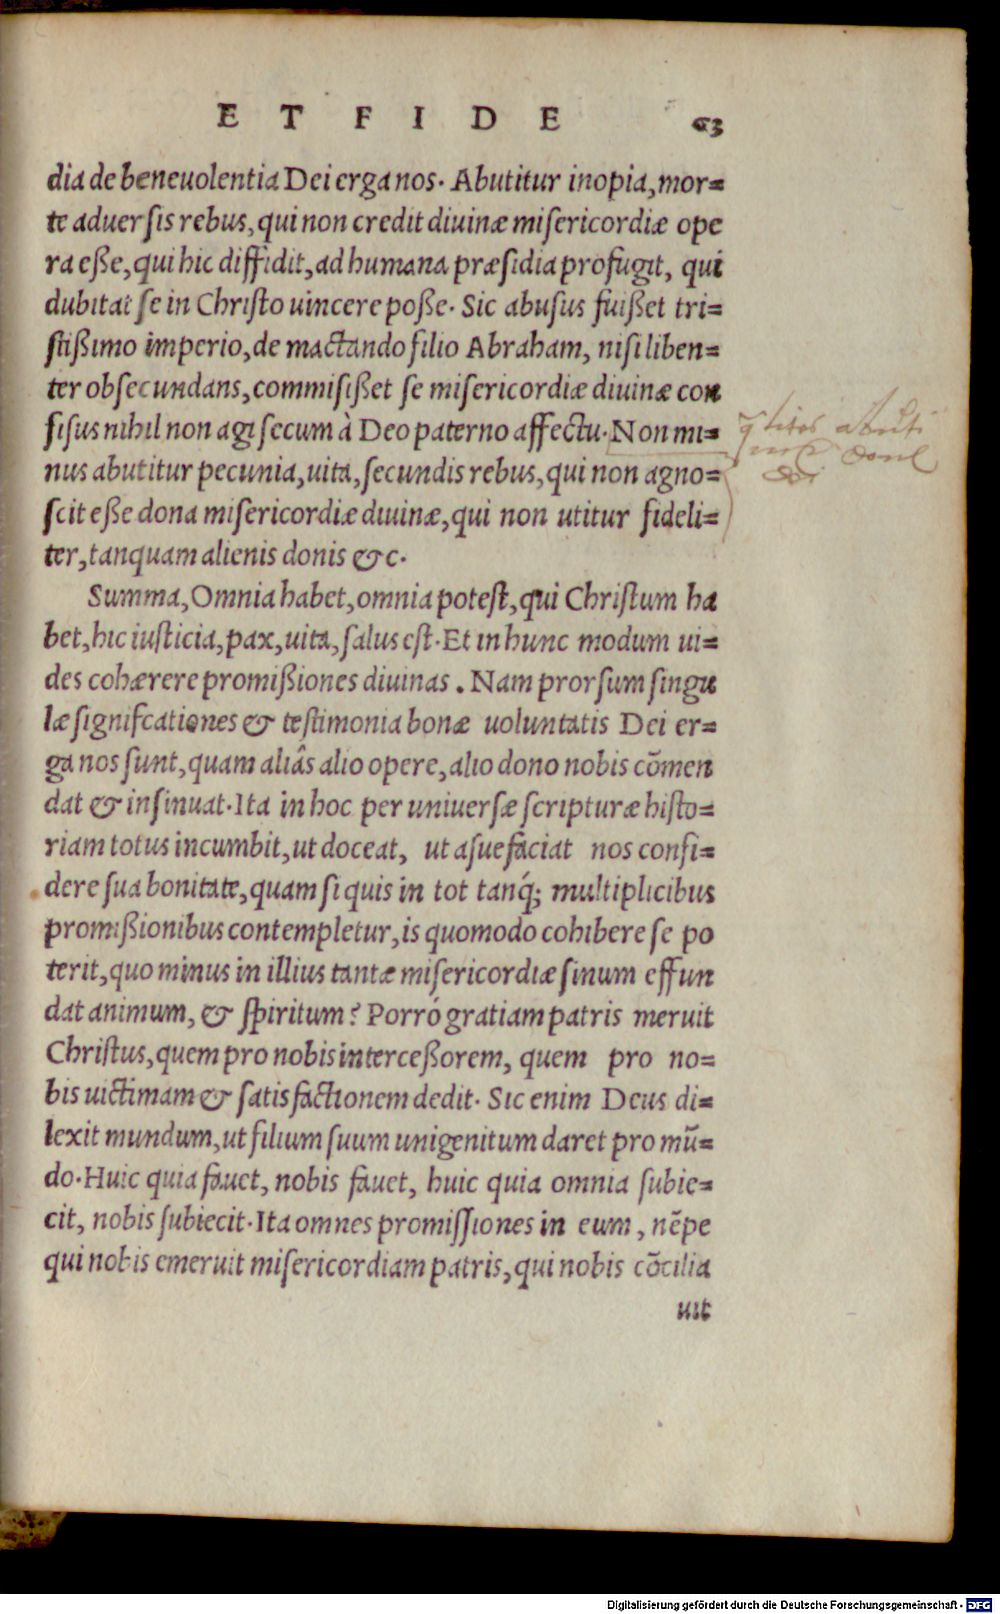 ET FIDE 63
dia de beneuolentia Dei erga nos. Abutitur inopia, mor=
te aduersis rebus, qui non credit diuinæ misericordiæ ope
ra eße, qui hic diffidit, ad humana præsidia profugit, qui
dubitat se in Christo uincere poße. Sic abusus fuißet tri=
stißimo imperio, de mactando filio Abraham, nisi liben=
ter obsecundans, commisißet se misericordiæ diuinæ con
fisus nihil non agi secum à Deo paterno affectu. Non mi=
nus abutitur pecunia, uita, secundis rebus, qui non agno=
scit eße dona misericordiæ diuinæ, qui non utitur fideli=
ter, tanquam alienis donis &c.
Summa, Omnia habet, omnia potest, qui Christum ha
bet, hic iusticia, pax, uita, salus est. Et in hunc modum ui=
des cohærere promißiones diuinas. Nam prorsum singu
læ signifcationes & testimonia bonæ uoluntatis Dei er=
ga nos sunt, quam aliâs alio opere, alio dono nobis cōmen
dat & insinuat. Ita in hoc per uniuersæ scripturæ histo=
riam totus incumbit, ut doceat, ut asuefaciat nos confi=
dere sua bonitate, quam si quis in tot tanq́; multiplicibus
promißionibus contempletur, is quomodo cohibere se po
terit, quo minus in illius tantæ misericordiæ sinum effun
dat animum, & spiritum? Porró gratiam patris meruit
Christus, quem pro nobis interceßorem, quem pro no=
bis uictimam & satisfactionem dedit. Sic enim Deus di=
lexit mundum, ut filium suum unigenitum daret pro mū=
do. Huic quia fauet, nobis fauet, huic quia omnia subie=
cit, nobis subiecit. Ita omnes promissiones in eum, nēpe
qui nobis emeruit misericordiam patris, qui nobis cōcilia
uit
Digitalisierung gefördert durch die Deutsche Forschungsgemeinschaft - DFG